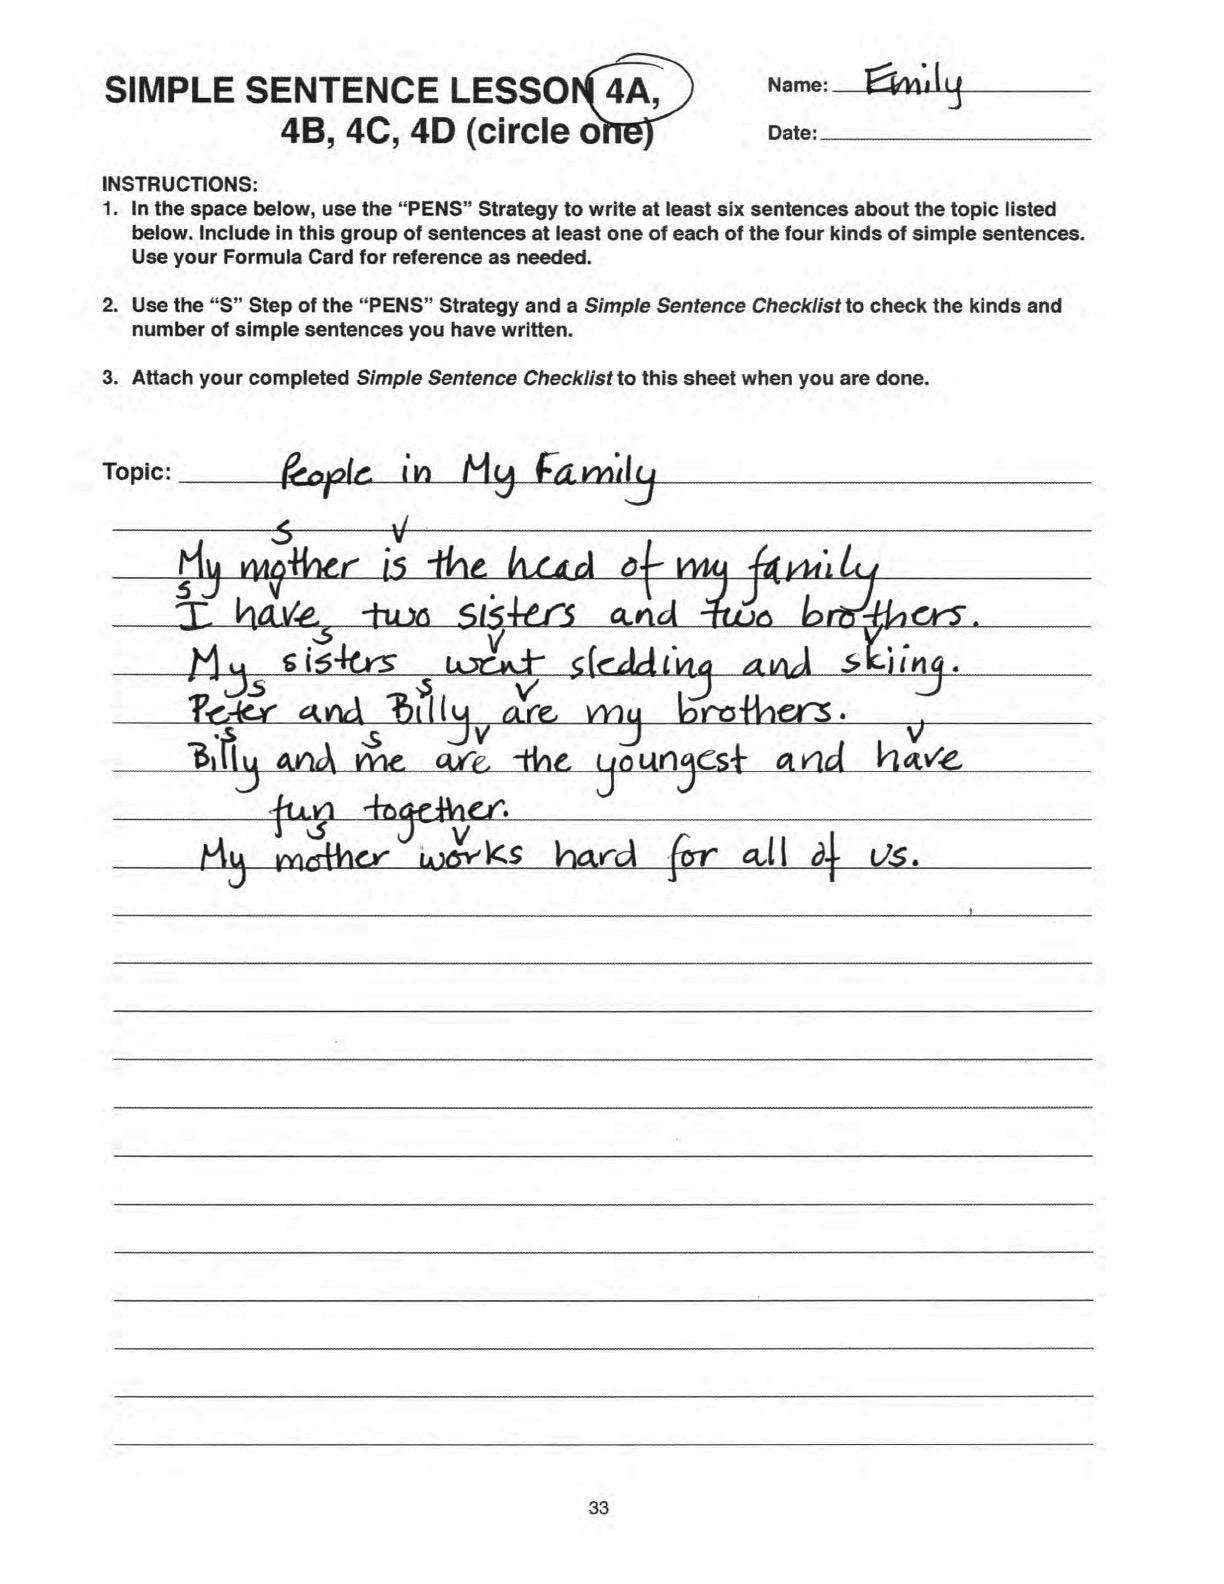 SIMPLE SENTENCE LESSON 4A,
4B, 4C, 4D (circle one)
Name: Emily
Date:
INSTRUCTIONS:
1. In the space below, use the “PENS” Strategy to write at least six sentences about the topic listed
below. Include in this group of sentences at least one of each of the four kinds of simple sentences.
Use your Formula Card for reference as needed.
2. Use the “S” Step of the “PENS” Strategy and a Simple Sentence Checklist to check the kinds and
number of simple sentences you have written.
3. Attach your completed Simple Sentence Checklist to this sheet when you are done.
Topic: People in My Family
S V
My mother is the head of my family
S V
I have two sisters and two brothers.
S V V
My sisters went sledding and skiing.
S S V
Peter and Billy are my brothers.
S S V V
Billy and me are the youngest and have
fun together.
S V
My mother works hard for all of us.
33